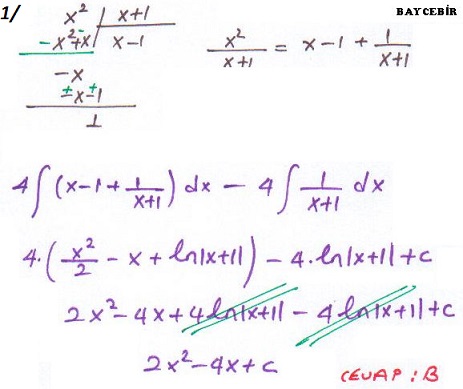 1/ BAYCEBİR
x² | x+1
-x²+x | x-1
-x
±x±1
1
x²/(x+1) = x-1 + 1/(x+1)
4∫(x-1+1/(x+1))dx - 4∫1/(x+1) dx
4.(x²/2 - x + ln|x+1|) - 4.ln|x+1|+c
2x²-4x+4ln|x+1| - 4ln|x+1|+c
2x²-4x+c
CEVAP : B